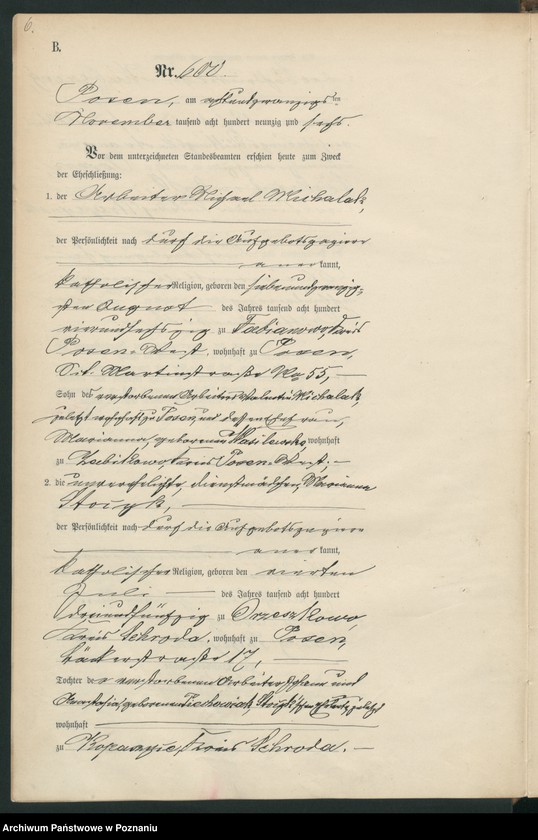 6.
B.
Nr. 600.
Posen, am achtundzwanzigs ten
November tausend acht hundert neunzig und sechs.
Vor dem unterzeichneten Standesbeamten erschien heute zum Zweck
der Eheschließung:
1. der Arbeiter Michael Michalak,
der Persönlichkeit nach durch die Aufgebotspapiere
aner kannt,
katholischer Religion, geboren den siebenundzwanzig=
sten August des Jahres tausend acht hundert
vierundsechszig zu Fabianowo, Kreis
Posen-West, wohnhaft zu Posen,
Skt. Martinstraße No 55,
Sohn des verstorbenen Arbeiters Valentin Michalak,
zuletzt wohnhaft zu Posen, und dessen Ehefrau,
Marianna, geborenen wohnhaft
zu Zabikowo, Kreis Posen-West;
2. die unverehelichte, Dienstmädchen Marianna
der Persönlichkeit nach durch die Aufgebotspapiere
aner kannt,
katholischer Religion, geboren den vierten
Juli des Jahres tausend acht hundert
dreiundfünfzig zu Orzeszkowo,
Kreis Schroda, wohnhaft zu Posen,
Bäckerstraße 17,
Tochter der verstorbenen Arbeiter und
geborenen zuletzt
wohnhaft
zu Kreis Schroda.
Archiwum Państwowe w Poznaniu